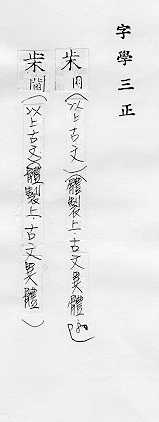 字學三正
(以上古文)(體製上·古文異體
(以上古文)(體製上·古文異體)